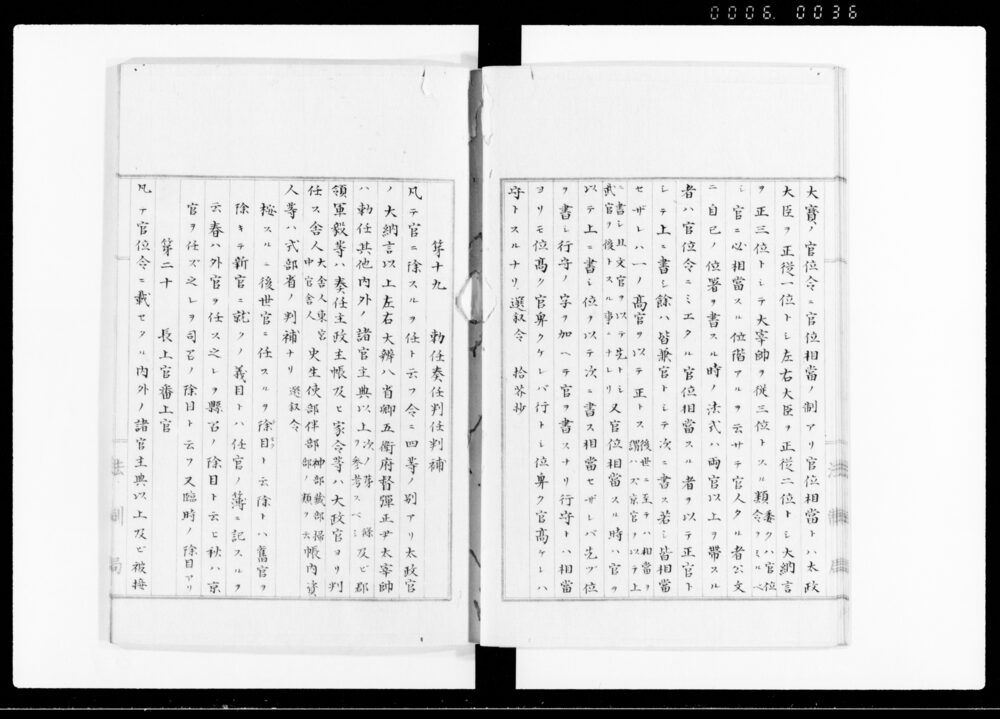 0006. 0036
大寳ノ官位令ニ官位相當ノ制アリ官位相當トハ太政
大臣ヲ正從一位トシ左右大臣ヲ正從二位トシ大納言
ヲ正三位トシテ大宰帥ヲ從三位トスル類委クハ官位令ヲミルベ
シ官ニ必相當スル位階アルヲ云サテ官人タル者公文
ニ自己ノ位署ヲ書スル時ノ法式ハ両官以上ヲ帶スル
者ハ官位令ニミエタル官位相當スル者ヲ以テ正官ト
シテ上ニ書シ餘ハ皆兼官トシテ次ニ書ス若シ皆相當
セザレハ一ノ高官ヲ以テ正トス後世ニ至テハ相當ヲ謂ハズ京官ヲ以テ上
ニ書シ且文官ヲ以テ先トシ武官ヲ後トスル事ニナレリ又官位相當スル時ハ官ヲ
以テ上ニ書シ位ヲ以テ次ニ書ス相當セザレバ先ヅ位
ヲ書シ行守ノ字ヲ加ヘテ官ヲ書スナリ行守トハ相當
ヨリモ位高ク官卑クケレバ行トシ位卑ク官高ケレハ
守トスルナリ 選叙令 拾芥抄
第十九 勅任奏任判任判補
凡テ官ニ除スルヲ任ト云フ令ニ四等ノ別アリ太政官
ノ大納言以上左右大辨八省卿五衛府督彈正尹太宰帥
ハ勅任其他内外ノ諸官主典以上次ノ条ヲ參考スベシ及ビ郡
領軍毅等ハ奏任主政主帳及ヒ家令等ハ大政官ヨリ判
任ス舍人大舍人東宮中宮舍人史生使部伴部神部藏部掃部ノ類ヲ云帳内資
人等ハ式部省ノ判補ナリ 選叙令
按スルニ後世官ニ任スルヲ除目ト云除トハ舊官ヲ
除キテ新官ニ就クノ義目トハ任官ノ簿ニ記スルヲ
云春ハ外官ヲ任ス之レヲ縣召ノ除目ト云ヒ秋ハ京
官ヲ任ズ之レヲ司召ノ除目ト云フ又臨時ノ除目アリ
第二十 長上官番上官
凡テ官位令ニ載セタル内外ノ諸官主典以上及ビ被接
法制局